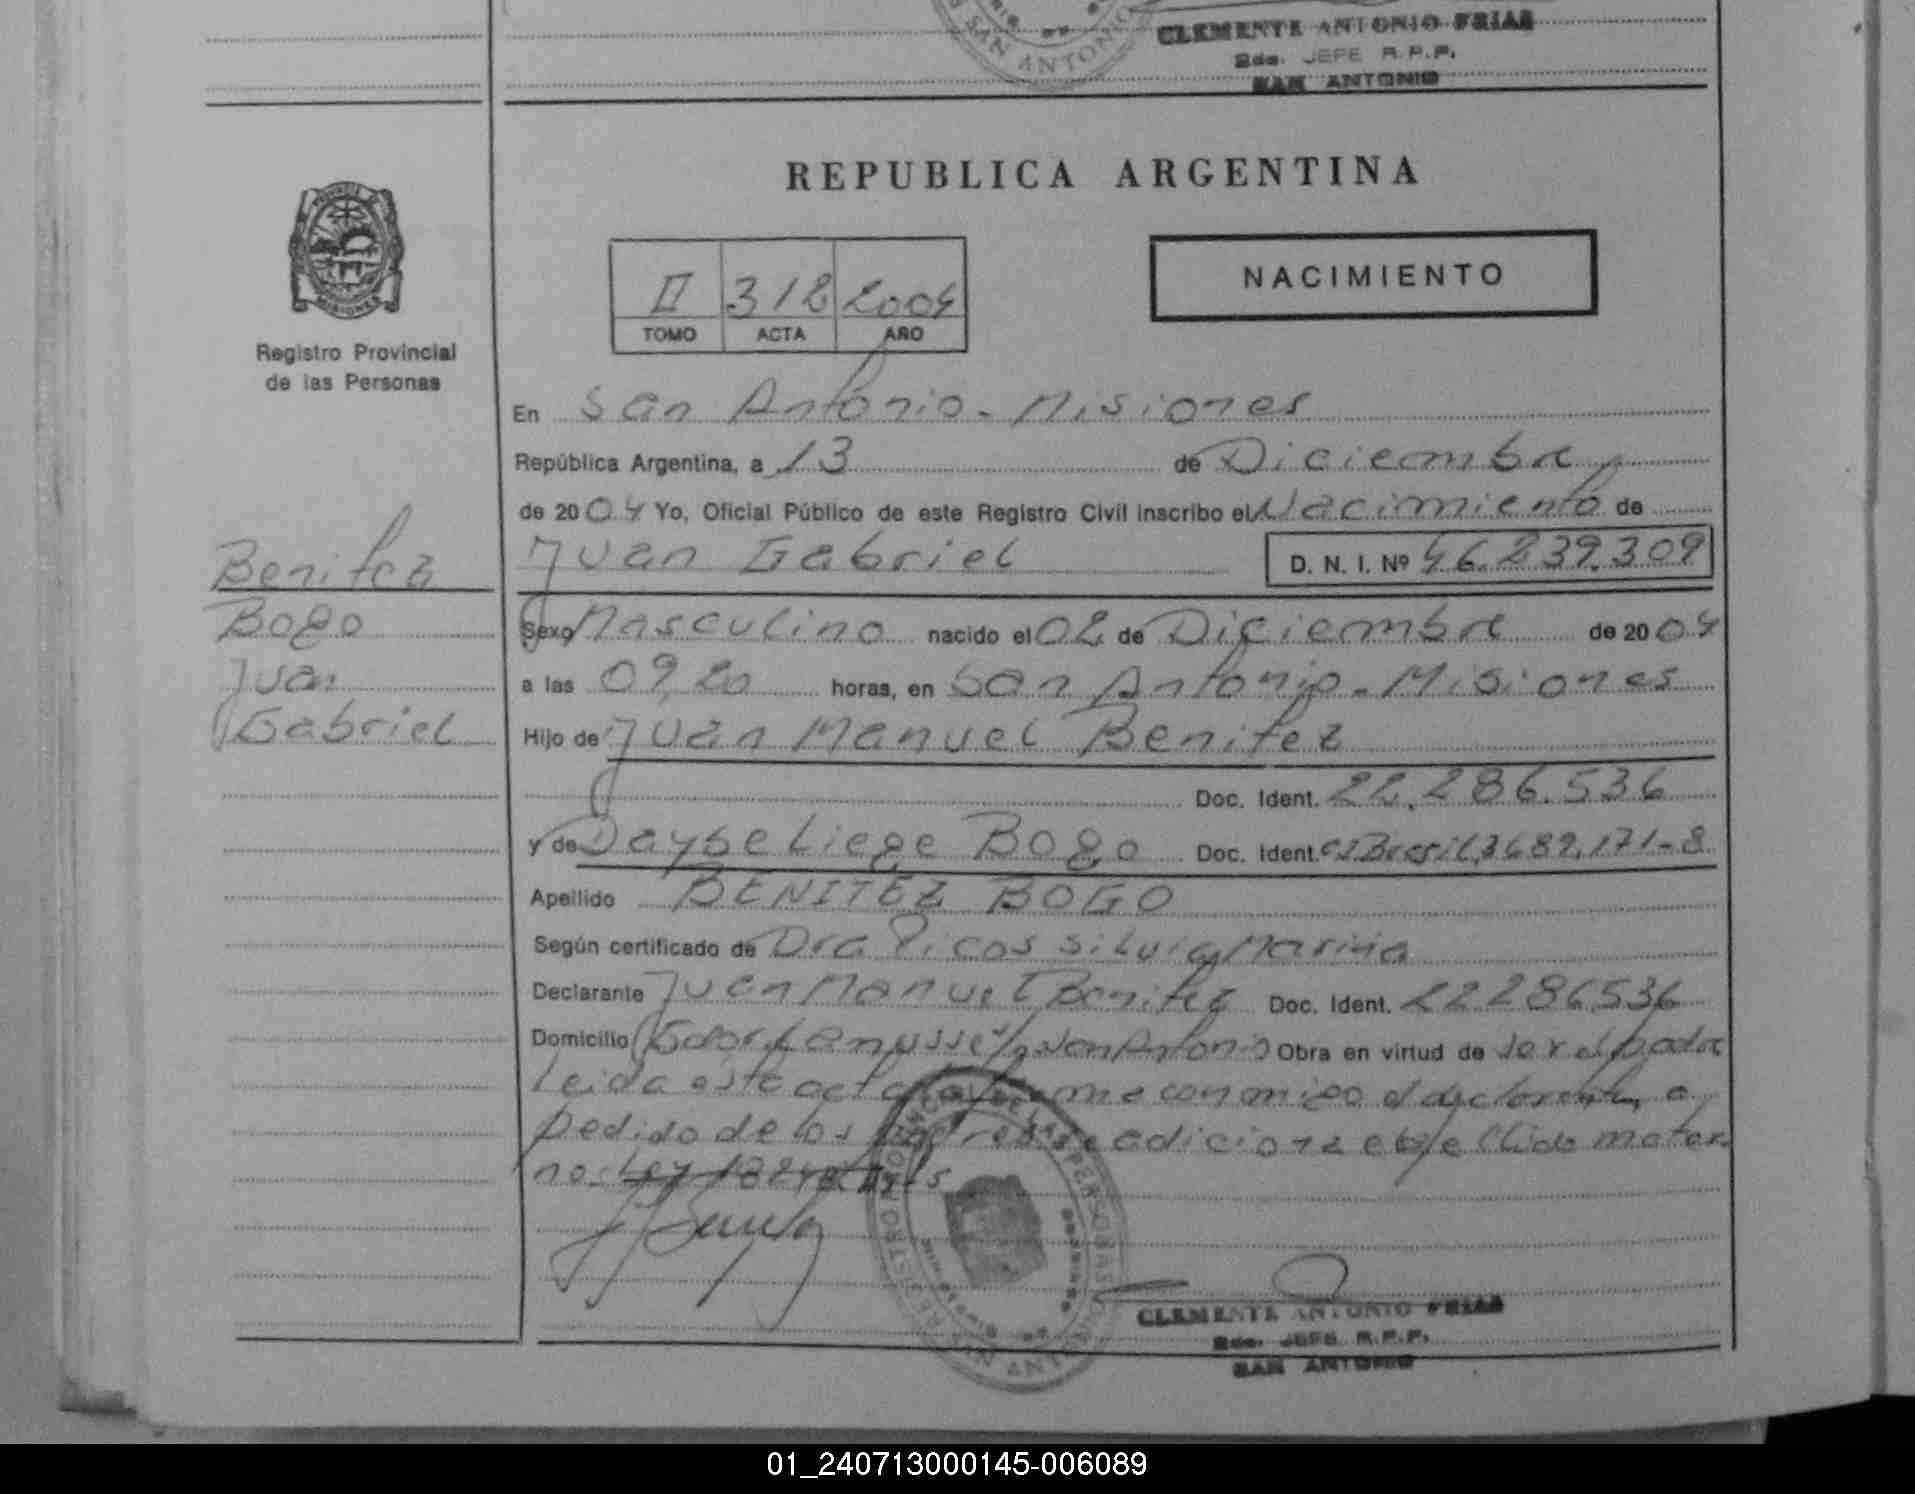 SAN ANTONIO
CLEMENTE ANTONIO FRIAS
Sdo. JEFE R.P.P.
SAN ANTONIO
REPUBLICA ARGENTINA
PROVINCIA
MISIONES
NACIMIENTO
II 312 2004
TOMO ACTA AÑO
Registro Provincial
de las Personas
En San Antonio - Misiones
República Argentina, a 13 de Diciembre
de 2004 Yo, Oficial Público de este Registro Civil inscribo el Nacimiento de
Juan Gabriel D. N. I. Nº 46.239.309
Benitez
Bogo
Juan
Gabriel
Sexo Masculino nacido el 02 de Diciembre de 2004
a las 09,20 horas, en San Antonio - Misiones
Hijo de Juan Manuel Benitez
Doc. Ident. 22.286.536
y de Dayse Liege Bogo Doc. Ident. CI Brasil 3689.171-8
Apellido BENITEZ BOGO
Según certificado de Dra Picos Silvia Marina
Declarante Juan Manuel Benitez Doc. Ident. 22286536
Domicilio San Antonio Obra en virtud de ser el padre
Leida este acta firme conmigo el declarante, a
pedido de los padres se adiciona el apellido mater
no Ley
CLEMENTE ANTONIO FRIAS
Sdo. JEFE R.P.P.
SAN ANTONIO
01_240713000145-006089